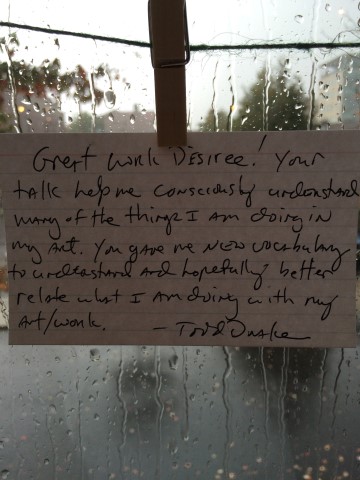 Great work Desiree! Your
talk help me consciously understand
many of the things I am doing in
my art. You gave me new vocabulary
to understand and hopefully better
relate what I am doing with my
art/work. - Todd Drake